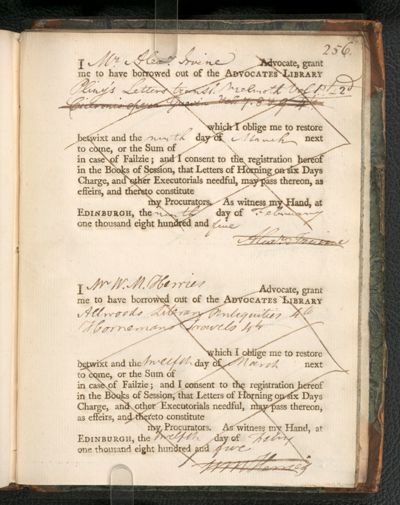 256.
I Mr Alexr Irvine Advocate, grant
me to have borrowed out of the ADVOCATES LIBRARY
Pliny's Letters transl. Melmoth Vol 1st 2d
which I oblige me to restore
betwixt and the ninth day of March next
to come, or the Sum of
in case of Failzie; and I consent to the registration hereof
in the Books of Session, that Letters of Horning on six Days
Charge, and other Executorials needful, may pass thereon, as
effeirs, and thereto constitute
my Procurators. As witness my Hand, at
EDINBURGH, the ninth day of February
one thousand eight hundred and five
Alexr Irvine
I Mr W. M. Herries Advocate, grant
me to have borrowed out of the ADVOCATES LIBRARY
Atwoods Literary Antiquities 4to
Hornemans Travels 4to
which I oblige me to restore
betwixt and the twelfth day of March next
to come, or the Sum of
in case of Failzie; and I consent to the registration hereof
in the Books of Session, that Letters of Horning on six Days
Charge, and other Executorials needful, may pass thereon,
as effeirs, and thereto constitute
my Procurators. As witness my Hand, at
EDINBURGH, the twelfth day of Febry
one thousand eight hundred and five
W M Herries